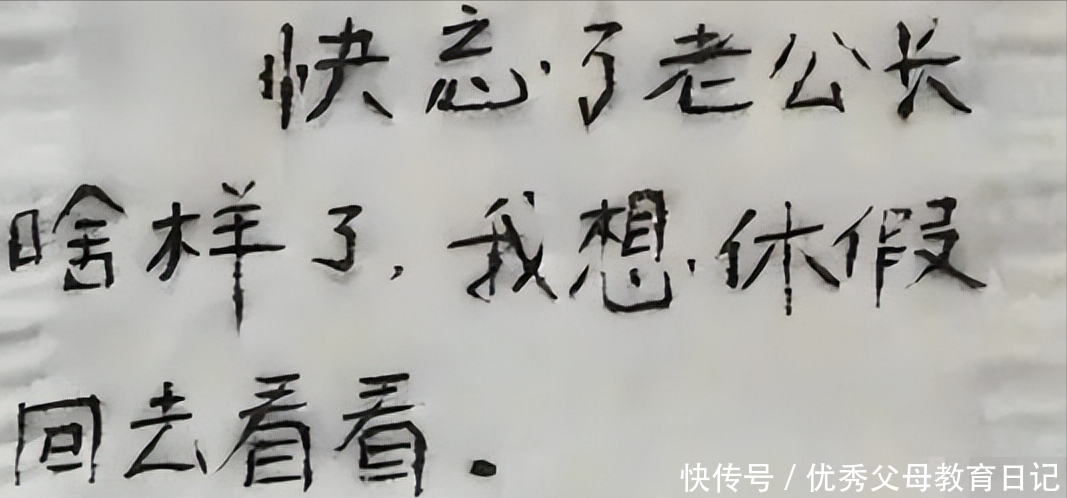 快忘了老公长
啥样了,我想休假
回去看看.
快传号 / 优秀父母教育日记